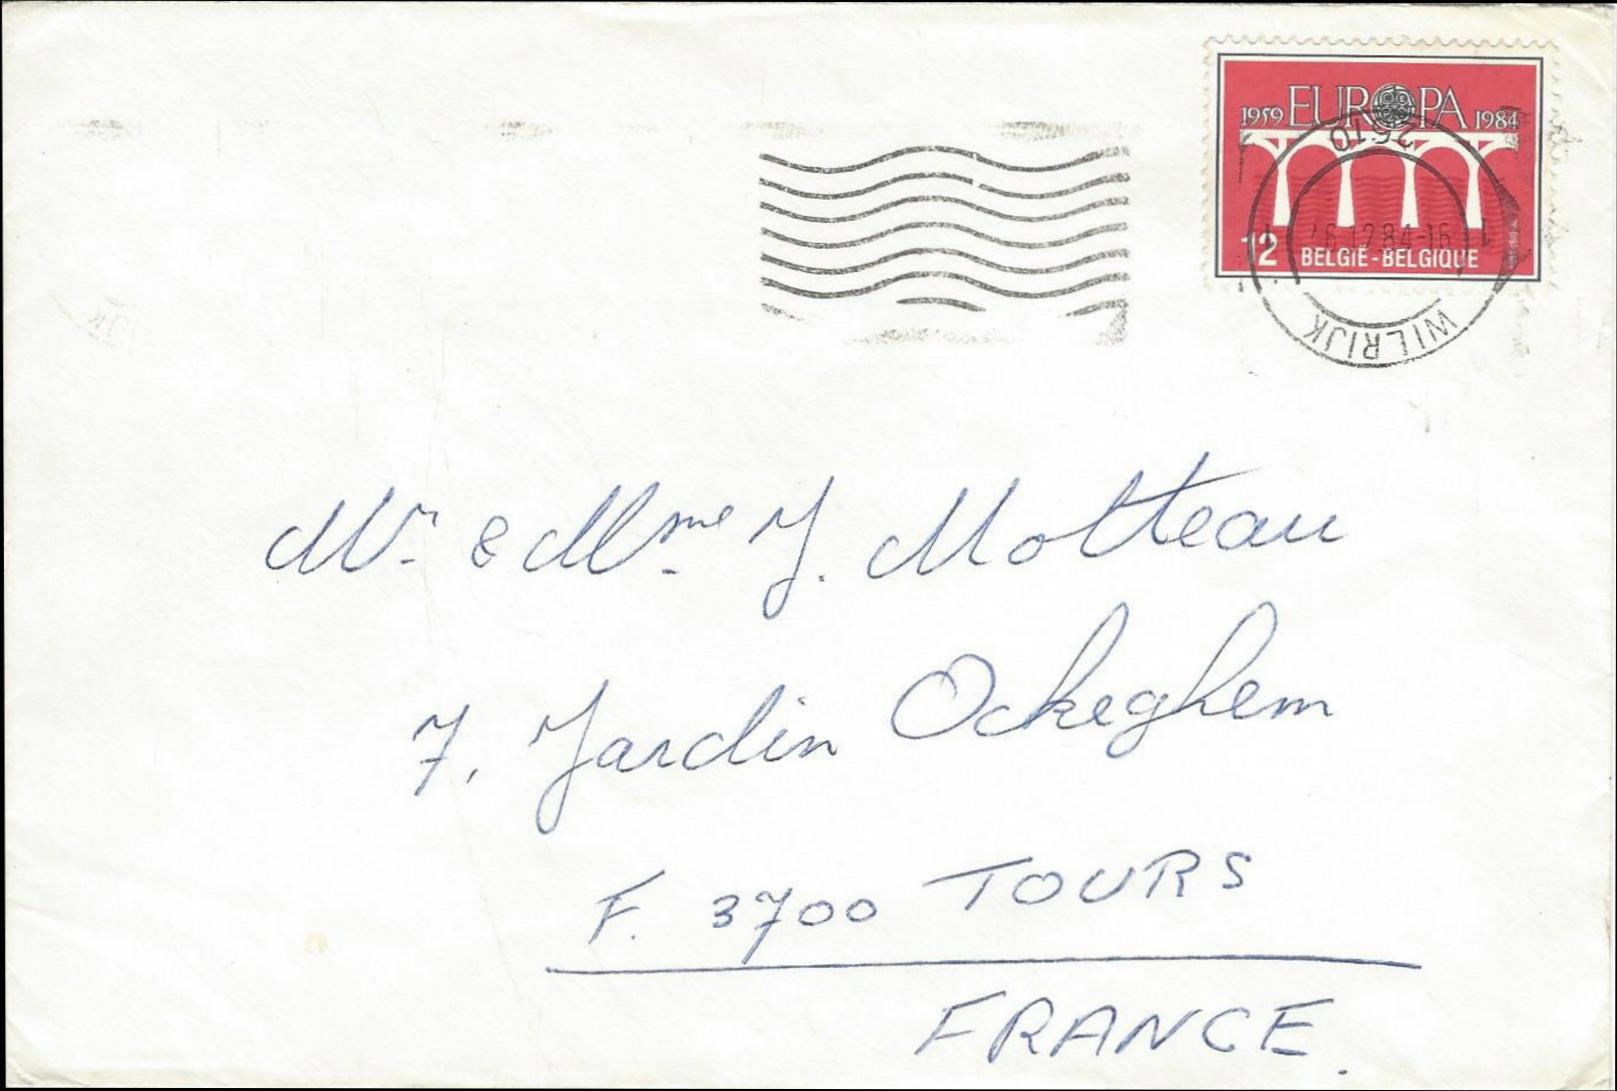 1959 EUROPA 1984
12 BELGIË-BELGIQUE
2610
6.12.84-16
WILRIJK
Mr. & Mme. J. Motteau
7, Jardin Ockeghem
F. 3700 TOURS
FRANCE.